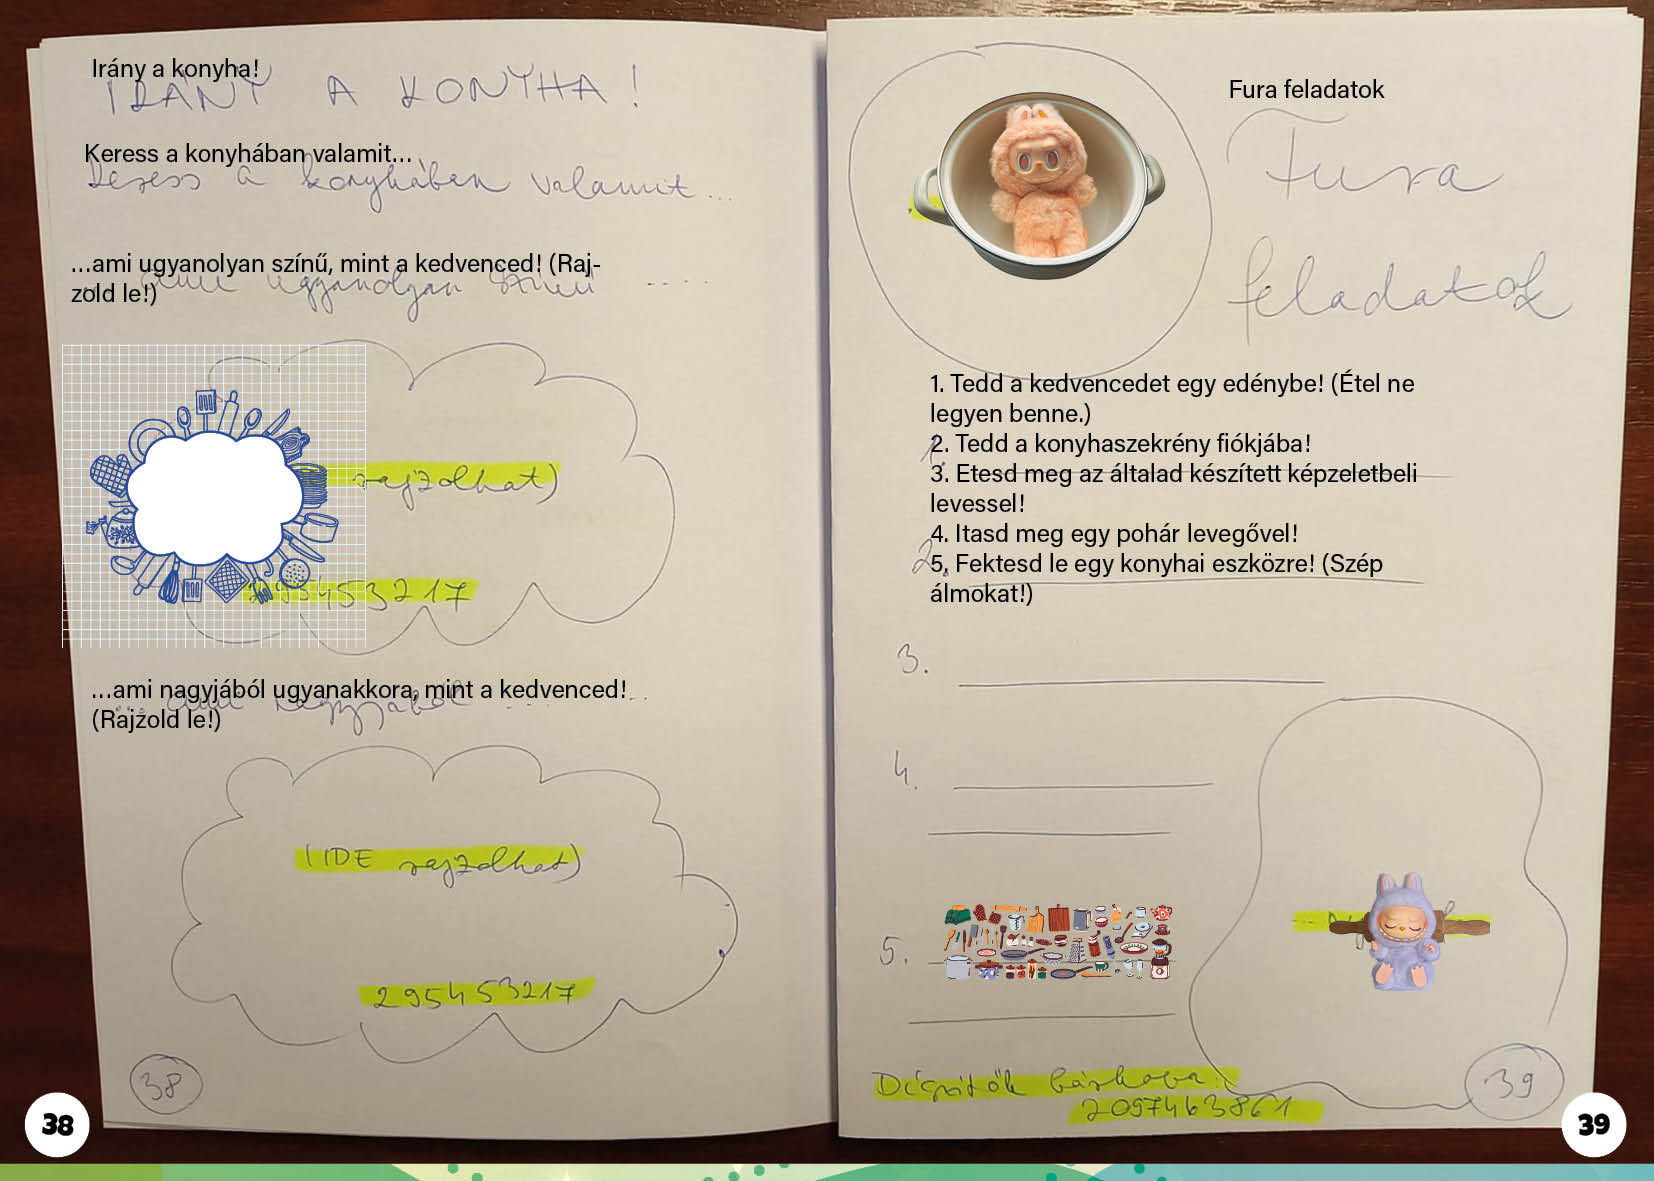 Irány a konyha!
IRÁNY A KONYHA!
Keress a konyhában valamit...
Keress a konyhában valamit...
...ami ugyanolyan színű, mint a kedvenced! (Raj-
zold le!)
... ami ugyanolyan színű ....
rajzolhat)
295453217
...ami nagyjából ugyanakkora, mint a kedvenced!
(Rajzold le!)
... ami nagyjából ......
(IDE rajzolhat)
295453217
38
38
Fura feladatok
Fura
feladatok
1. Tedd a kedvencedet egy edénybe! (Étel ne
legyen benne.)
2. Tedd a konyhaszekrény fiókjába!
3. Etesd meg az általad készített képzeletbeli
levessel!
4. Itasd meg egy pohár levegővel!
5. Fektesd le egy konyhai eszközre! (Szép
álmokat!)
1.
2.
3.
4.
5.
Díszítők bárhova:
2097463861
39
39